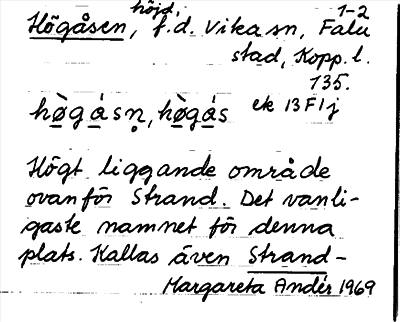 höjd, 1-2
Högåsen, f.d. Vika sn, Falu
stad, Kopp. l.
135.
hò̲gá̲sn̥, hò̲gá̲s ek 13F1j
Högt liggande område
ovanför Strand. Det vanli-
gaste namnet för denna
plats. Kallas även Strand-
Margareta Andér 1969